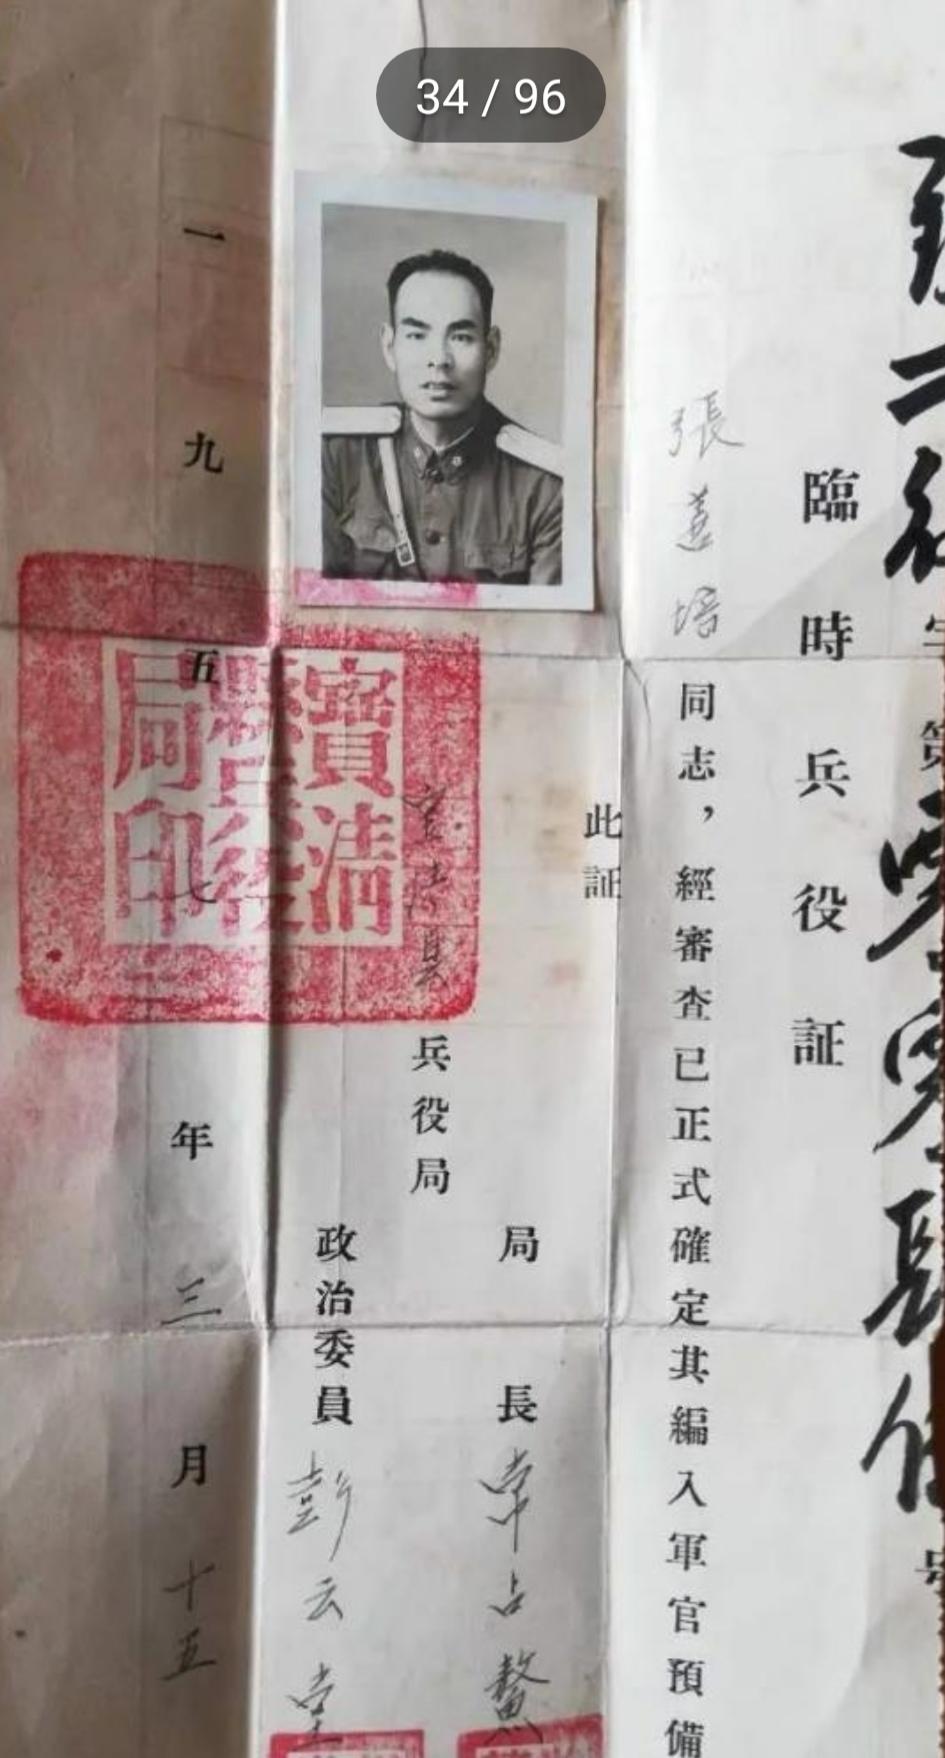 34 / 96
字第
号
臨時兵役証
張善培同志，經審查已正式確定其編入軍官預備
此証
局長常占鰲
寶清县兵役局
政治委員彭云堂
一九五七年三月十五
寶清
縣兵役
局印